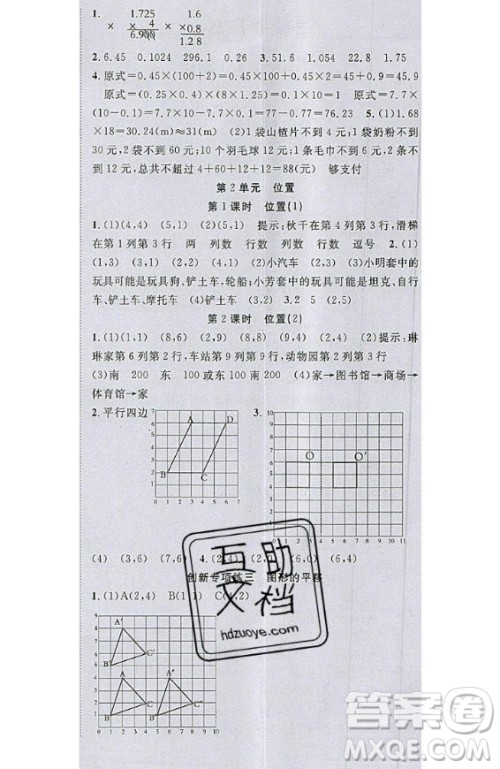 1.
1.725
× 4
6.900
1.6
× 0.8
1.2 8
2.6.45 0.1024 296.1 0.26 3.51.6 1.054 22.8 1.75
4.原式=0.45×(100+2)=0.45×100+0.45×2=45+0.9=45.9
原式=(0.25×4)×(8×1.25)=1×10=10 原式=7.7×
(10-1)+7.7=7.7×10-7.7+7.7=77-0.77=76.23 5.(1)1.68
×18=30.24(m)≈31(m) (2)1袋山楂片不到4元,1袋奶粉不到
30元,2袋不到60元;10个羽毛球12元;1条毛巾不到6元,2条不
到12元,总价不超过4+60+12+12=88(元) 够支付
第2单元 位置
第1课时 位置(1)
1.(1)(4,4) (5,1) 提示:秋千在第4列第3行,滑梯
在第5列第1行 两 列数 行数 列数 行数 逗号 2.(1)
(1,3) (3,1) (6,2) (2)小汽车 (3)小明套中的
玩具可能是玩具狗、铲土车、轮船;小芳套中的玩具可能是坦克、自行
车、铲土车、摩托车 (4)铲土车 3.2 5 (2,5)
第2课时 位置(2)
1.(1)(1,1) (8,6) (2,4) (8,9) (8,3) (2)提示:琳
琳家第6列第2行,车站第9列第9行,动物园第2列第8行
(3)南 200 东 100 或东 100 南 200 (4)家→图书馆→商场→
体育馆→家
2.平行四边
3.
A D
B C
O O′
(4) (3,6) (7,6) 4.(2,4) (2,0) (6,0) (6,4)
创新专项练三 图形的平移
1.(1)A(2,4) B(1,1) (4,2)
A′
B′ C′
A A″
B C B″ C″
互助
文档
hdzuoye.com
答案圈
MXQE.COM